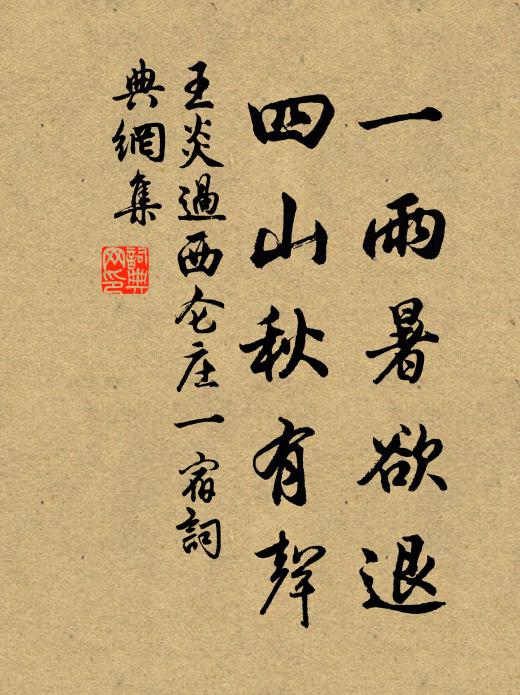 一雨暑欲退
四山秋有聲
王炎過西仑庄一宿詞
典網集
詞典
网印